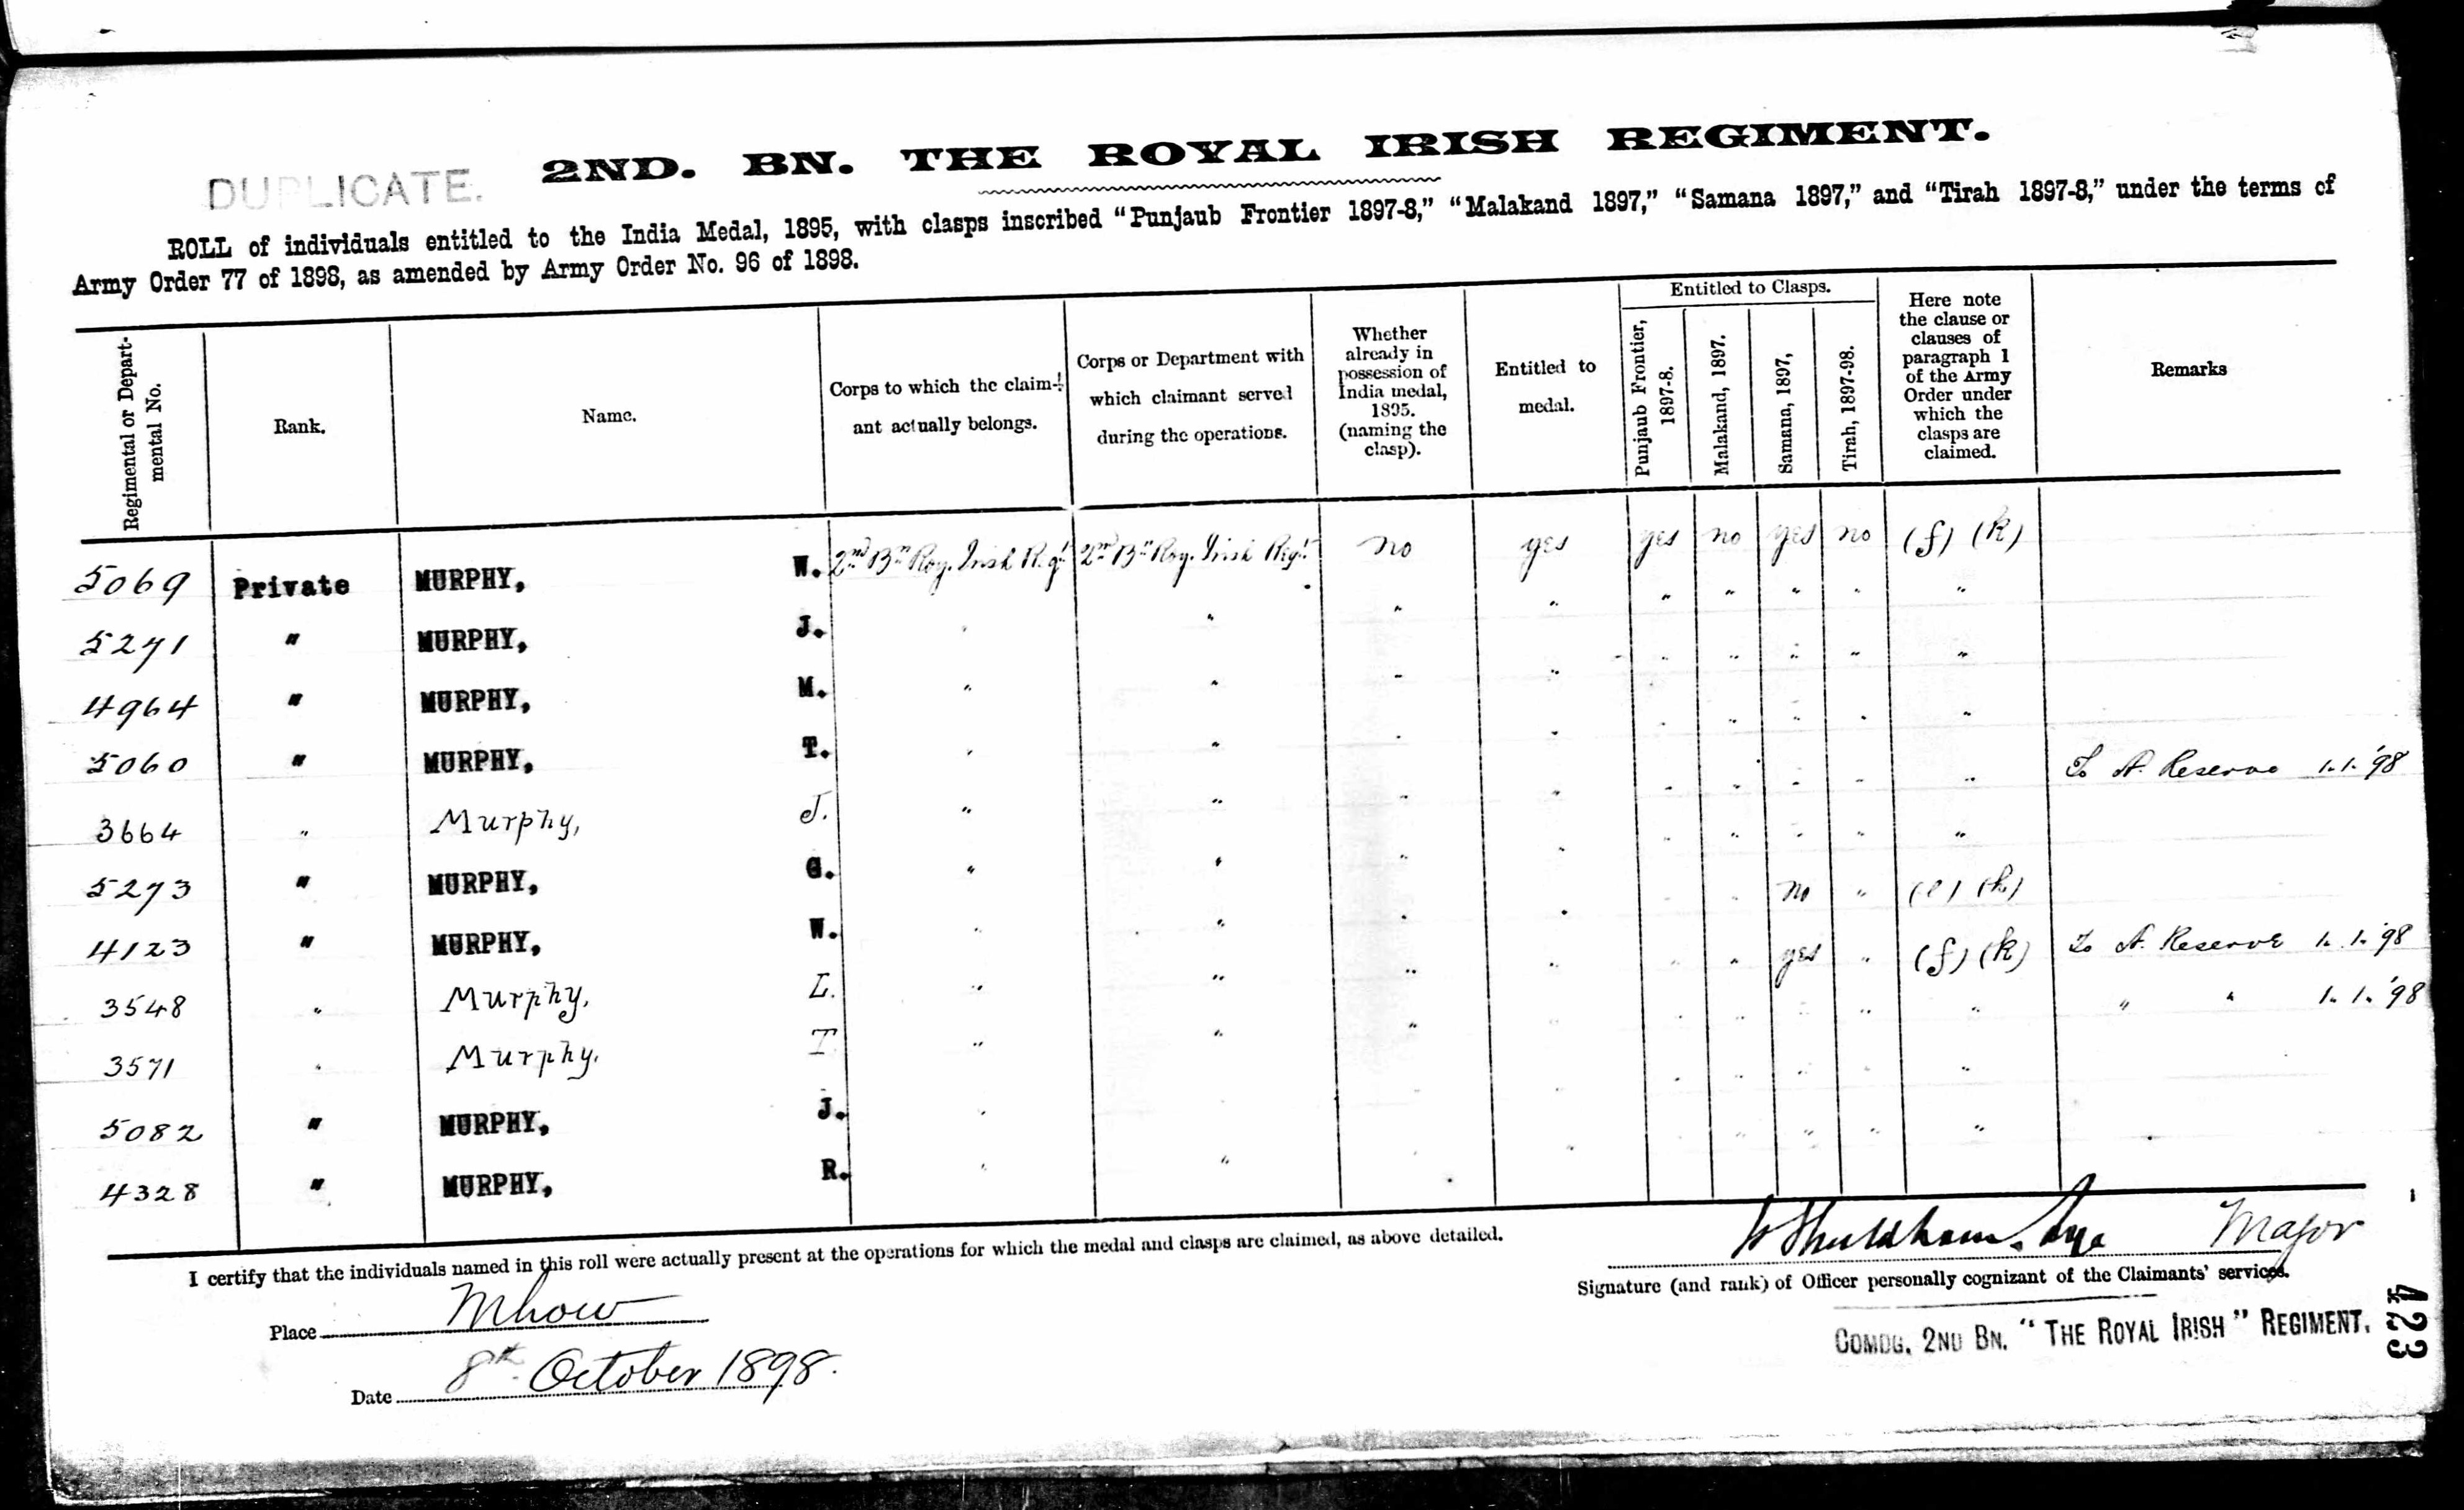 DUPLICATE.
2ND. BN. THE ROYAL IRISH REGIMENT.
ROLL of individuals entitled to the India Medal, 1895, with clasps inscribed “Punjaub Frontier 1897-8,” “Malakand 1897,” “Samana 1897,” and “Tirah 1897-8,” under the terms of
Army Order 77 of 1898, as amended by Army Order No. 96 of 1898.
Regimental or Depart-
mental No.
Rank.
Name.
Corps to which the claim-
ant actually belongs.
Corps or Department with
which claimant served
during the operations.
Whether
already in
possession of
India medal,
1895.
(naming the
clasp).
Entitled to
medal.
Entitled to Clasps.
Punjaub Frontier,
1897-8.
Malakand, 1897.
Samana, 1897,
Tirah, 1897-98.
Here note
the clause or
clauses of
paragraph 1
of the Army
Order under
which the
clasps are
claimed.
Remarks
5069 Private MURPHY, W. 2nd Bn Roy. Irish Regt 2nd Bn Roy. Irish Regt no yes yes no yes no (f) (k)
5271 " MURPHY, J. " " " " " " " " "
4964 " MURPHY, M. " " " " " " " " "
5060 " MURPHY, T. " " " " " " " " "
3664 " Murphy, J. " " " " " " " " " To A. Reserve 1.1.'98
5273 " MURPHY, G. " " " " " " " " "
4123 " MURPHY, W. " " " " " " no " (e) (k)
3548 " Murphy, L. " " " " " " yes " (f) (k) To A. Reserve 1.1.'98
3571 " Murphy. T " " " " " " " " " " " 1.1.'98
5082 " MURPHY, J. " " " " " " " " "
4328 " MURPHY, R. " " " " " " " " "
I certify that the individuals named in this roll were actually present at the operations for which the medal and clasps are claimed, as above detailed.
Major
Signature (and rank) of Officer personally cognizant of the Claimants' services.
Place Mhow
COMDG. 2ND BN. “THE ROYAL IRISH” REGIMENT.
Date 8th October 1898.
423